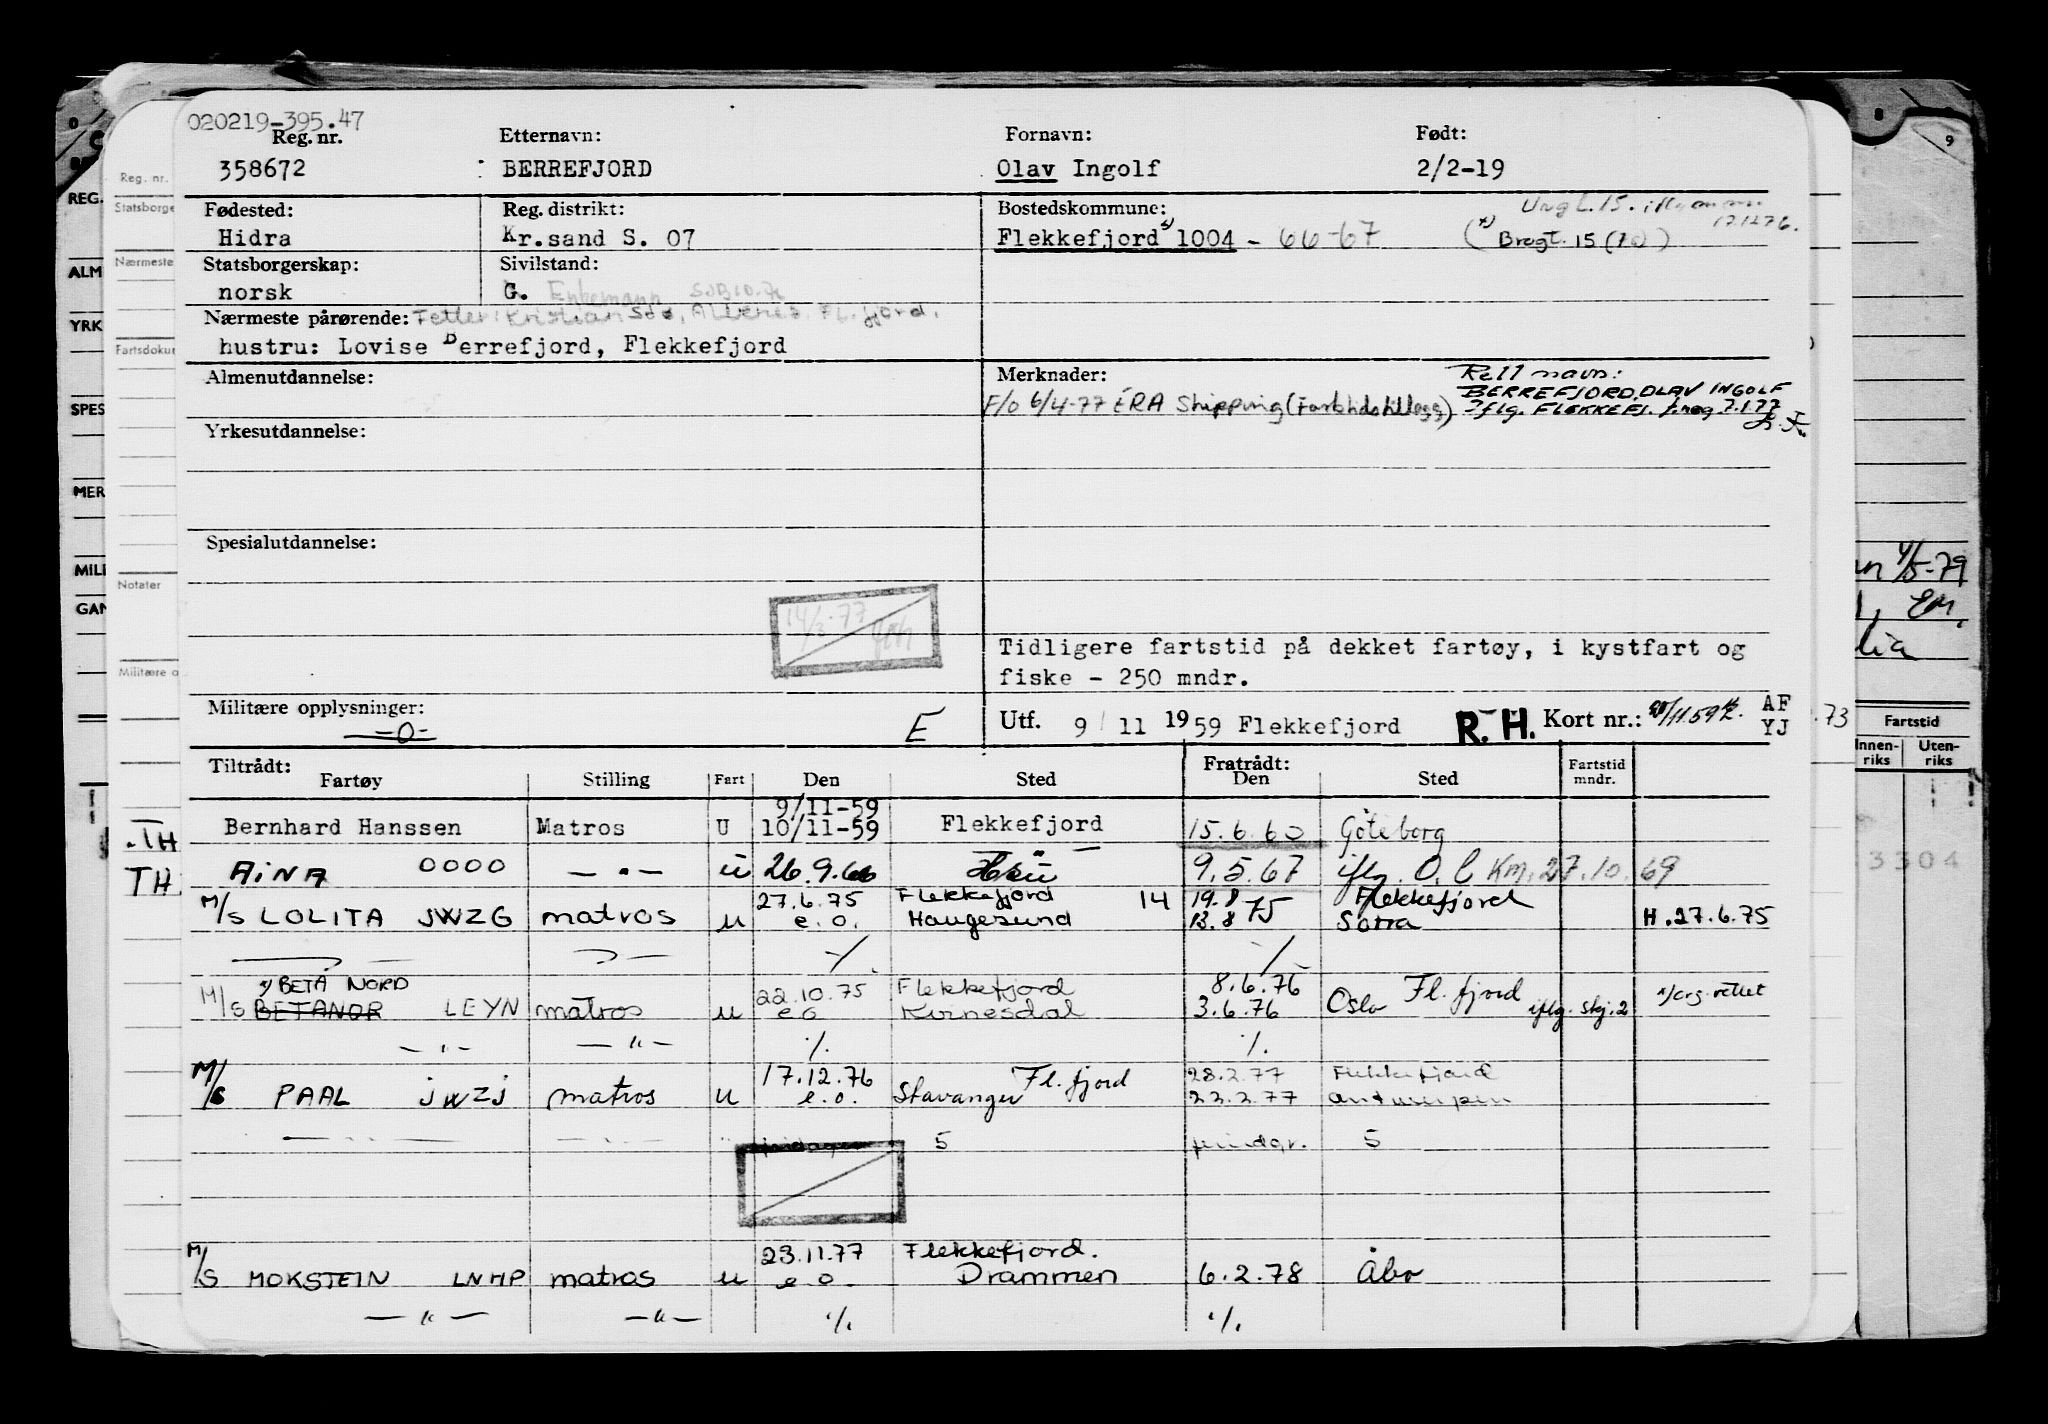 020219-395.47
Reg. nr. Etternavn: Fornavn: Født:
358672 BERREFJORD Olav Ingolf 2/2-19
Fødested: Reg. distrikt: Bostedskommune:
Hidra Kr.sand S. 07 Flekkefjord x) 1004 - 66-67 (x) Bregt. 15 (70)
17.12.76.
Statsborgerskap: Sivilstand:
norsk G. Enkemann
Nærmeste pårørende: Fetter: Kristian Fl.fjord.
hustru: Lovise Berrefjord, Flekkefjord
Almenutdannelse: Merknader: Rett navn:
BERREFJORD, OLAV INGOLF
F/o 6/4-77 ERA Shipping (Fartstidstillegg) iflg. FLEKKEFJ. 7.1.77
Yrkesutdannelse:
Spesialutdannelse:
14/3-77
Tidligere fartstid på dekket fartøy, i kystfart og
fiske - 250 mndr.
Militære opplysninger:
-0- E Utf. 9/11 1959 Flekkefjord R.H. Kort nr.: AF
YJ
Tiltrådt: Fratrådt:
Fartøy Stilling Fart Den Sted Den Sted Fartstid mndr.
9/11-59
Bernhard Hanssen Matros U 10/11-59 Flekkefjord 15.6.60 Göteborg
AINA OOOO — " — u 26.9.66 9.5.67 iflg. O.L Km. 27.10.69
M/S LOLITA JWZG matros u 27.6.75 Flekkefjord 14 19.8 75 Flekkefjord
e.o. Haugesund 13.8 Sotra H.27.6.75
٪ ٪
x) BETA NORD
M/S BETANOR LEYN matros u 22.10.75 Flekkefjord 8.6.76 Fl.fjord
e.o. Kvinesdal 3.6.76 Oslo iflg. skj. 2 x) org. rettet
— " — — " — ٪ ٪
M/S PAAL JWZJ matros u 17.12.76 Fl.fjord 28.2.77 Flekkefjord
e.o. Stavanger 22.2.77 Antwerpen
5 5
M/S MOKSTEIN LNMP matros u 23.11.77 Flekkefjord.
e.o. Drammen 6.2.78 Åbo
— " — — " — ٪ ٪
REG.
ALM
YRK
SPES
MER
MILI
GAN
Reg. nr.
Statsborge
Nærmeste
Fartsdoku
Notater
Militære o
.TH
TH
4/5-79
73
Fartstid
Innen-
riks
Uten-
riks
3304
8
9